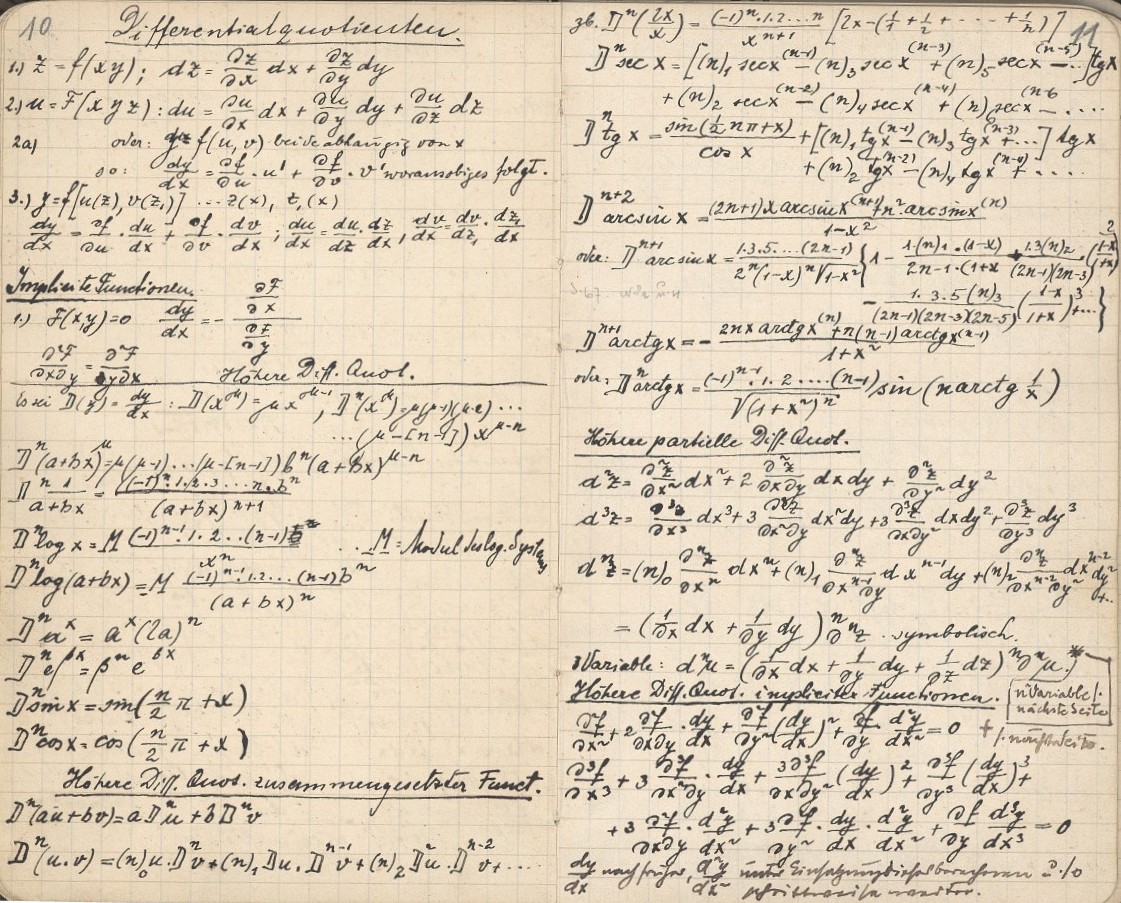 10
Differentialquotienten.
1.) z = f(xy); dz = ∂z/∂x dx + ∂z/∂y dy
2.) u = F(x y z) : du = ∂u/∂x dx + ∂u/∂y dy + ∂u/∂z dz
2a) oder: f(u,v) beide abhängig von x
so: dy/dx = ∂f/∂u · u' + ∂f/∂v · v' woraus obiges folgt.
3.) y = f[u(z), v(z₁)] ... z(x), z₁(x)
dy/dx = ∂f/∂u · du/dx + ∂f/∂v · dv/dx ; du/dx = du/dz · dz/dx, dv/dx = dv/dz₁ · dz₁/dx
Implicite Functionen.
1.) F(x,y)=0 dy/dx = - (∂F/∂x)/(∂F/∂y)
∂²F/∂x∂y = ∂²F/∂y∂x
Höhere Diff. Quot.
Es sei D(y) = dy/dx : D(x^μ) = μx^(μ-1), Dⁿ(x^μ) = μ(μ-1)(μ-2) ...
... (μ-[n-1]) x^(μ-n)
Dⁿ(a+bx)^μ = μ(μ-1)...(μ-[n-1]) bⁿ(a+bx)^(μ-n)
Dⁿ 1/(a+bx) = (-1)ⁿ·1.2.3...n.bⁿ/(a+bx)^(n+1)
Dⁿ log x = M (-1)^(n-1)·1.2...(n-1)/xⁿ ... M = Modul des log. Systems
Dⁿ log(a+bx) = M (-1)^(n-1)·1.2...(n-1)bⁿ/(a+bx)ⁿ
Dⁿ aˣ = aˣ(la)ⁿ
Dⁿ e^(βx) = βⁿ e^(βx)
Dⁿ sin x = sin(n/2 π + x)
Dⁿ cos x = cos(n/2 π + x)
Höhere Diff. Quot. zusammengesetzter Funct.
Dⁿ(au+bv) = aDⁿu + bDⁿv
Dⁿ(u.v) = (n)₀u.Dⁿv + (n)₁Du.D^(n-1)v + (n)₂D²u.D^(n-2)v + ....
11
zb. Dⁿ(lx/x) = (-1)ⁿ·1.2...n/x^(n+1) [lx-(1/1 + 1/2 + ... + 1/n)]
Dⁿ sec x = [(n)₁ sec x^(n-1) - (n)₃ sec x^(n-3) + (n)₅ sec x^(n-5) - ...] tg x
+ (n)₂ sec x^(n-2) - (n)₄ sec x^(n-4) + (n)₆ sec x^(n-6) - ....
Dⁿ tg x = sin(½nπ+x)/cos x + [(n)₁ tg x^(n-1) - (n)₃ tg x^(n-3) + ...] tg x
+ (n)₂ tg x^(n-2) - (n)₄ tg x^(n-4) + ....
D^(n+2) arcsin x = ((2n+1)x arcsin x^(n+1) + n² arcsin x^(n))/(1-x²)
oder: D^(n+1) arcsin x = 1.3.5....(2n-1)/(2ⁿ(1-x)ⁿ√(1-x²)) {1 - 1.(n)₁.(1-x)/(2n-1.(1+x) + 1.3(n)₂/((2n-1)(2n-3)) · ((1-x)/(1+x))²
- 1.3.5(n)₃/((2n-1)(2n-3)(2n-5)) ((1-x)/(1+x))³ + ...}
D^(n+1) arctg x = - (2nx arctg x^(n) + n(n-1) arctg x^(n-1))/(1+x²)
oder: Dⁿ arctg x = (-1)^(n-1)·1.2....(n-1)/√(1+x²)ⁿ sin(n arctg 1/x)
Höhere partielle Diff. Quot.
d²z = ∂²z/∂x² dx² + 2 ∂²z/∂x∂y dx dy + ∂²z/∂y² dy²
d³z = ∂³z/∂x³ dx³ + 3 ∂³z/∂x²∂y dx²dy + 3 ∂³z/∂x∂y² dxdy² + ∂³z/∂y³ dy³
dⁿz = (n)₀ ∂ⁿz/∂xⁿ dxⁿ + (n)₁ ∂ⁿz/∂x^(n-1)∂y dx^(n-1)dy + (n)₂ ∂ⁿz/∂x^(n-2)∂y² dx^(n-2)dy² + ..
= (1/∂x dx + 1/∂y dy)ⁿ ∂ⁿz . symbolisch.
3 Variable: dⁿu = (1/∂x dx + 1/∂y dy + 1/∂z dz)ⁿ ∂ⁿu.)*
n Variable /.
nächste Seite
Höhere Diff. Quot. impliciter Functionen.
∂²f/∂x² + 2 ∂²f/∂x∂y · dy/dx + ∂²f/∂y² (dy/dx)² + ∂f/∂y d²y/dx² = 0
∂³f/∂x³ + 3 ∂³f/∂x²∂y · dy/dx + 3∂³f/∂x∂y² (dy/dx)² + ∂³f/∂y³ (dy/dx)³ +
+ 3 ∂²f/∂x∂y · d²y/dx² + 3 ∂²f/∂y² · dy/dx · d²y/dx² + ∂f/∂y d³y/dx³ = 0
dy/dx nach früher, d²y/dx² unter Einsetzung dieses berechnen u. so
schrittweise weiter.